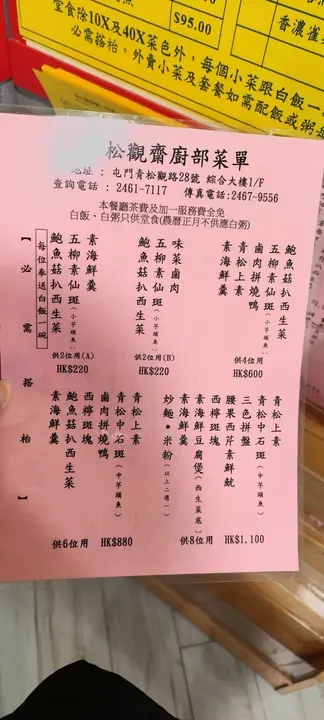 $95.00
堂食除10X及40X菜色外，每個小菜跟白飯一
必需搭枱。外賣小菜及套餐如需配飯或粥每
松觀齋廚部菜單
地址：屯門青松觀路28號 綜合大樓1/F
查詢電話：2461-7117 傳真電話:2467-9556
本餐廳茶費及加一服務費全免
白飯、白粥只供堂食(農曆正月不供應白粥)
【必需搭枱】
每位奉送白飯一碗
素海鮮羹
五柳素仙斑(小芋頭魚)
鮑魚菇扒西生菜
供2位用(A)
HK$220
味菜鹵肉
五柳素仙斑(小芋頭魚)
鮑魚菇扒西生菜
供2位用(B)
HK$220
鮑魚菇扒西生菜
五柳素仙斑(小芋頭魚)
鹵肉拼燒鴨
青松上素
素海鮮羹
供4位用
HK$600
青松上素
青松中石斑(中芋頭魚)
鹵肉拼燒鴨
西檸班塊
鮑魚菇扒西生菜
素海鮮羹
供6位用 HK$880
青松上素
青松中石斑(中芋頭魚)
三色拼盤
腰果西芹素鮮魷
西檸斑塊
素海鮮豆腐煲(西生菜底)
素海鮮羹
炒麵•米粉(以上二選一)
供8位用 HK$1,100